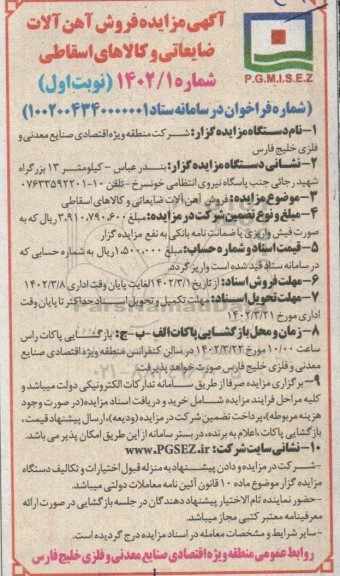 آگهی مزایده فروش آهن آلات
ضایعاتی و کالاهای اسقاطی
شماره ۱۴۰۲/۱ (نوبت اول)
P.G.M.I.S.E.Z
(شماره فراخوان در سامانه ستاد ۱۰۰۲۰۰۴۳۴۰۰۰۰۰۱)
۱- نام دستگاه مزایده گزار: شرکت منطقه ویژه اقتصادی صنایع معدنی و
فلزی خلیج فارس
۲- نشانی دستگاه مزایده گزار: بندر عباس - کیلومتر ۱۳ بزرگراه
شهید رجائی جنب پاسگاه نیروی انتظامی خونسرخ - تلفن ۱۰-۰۷۶۳۳۵۹۲۲۰۱
۳- موضوع مزایده: فروش آهن آلات ضایعاتی و کالاهای اسقاطی
۴- مبلغ و نوع تضمین شرکت در مزایده: مبلغ ۳.۹۱۰.۷۹۰.۶۰۰ ریال که به
صورت فیش واریزی یا ضمانت نامه بانکی به نفع مزایده گزار
۵- قیمت اسناد و شماره حساب: مبلغ ۱.۵۰۰.۰۰۰ ریال به شماره حسابی که
در سامانه ستاد قید شده است واریز گردد.
۶- مهلت فروش اسناد: از تاریخ ۱۴۰۲/۳/۱ لغایت پایان وقت اداری ۱۴۰۲/۳/۸
۷- مهلت تحویل اسناد: مهلت تکمیل و تحویل اسناد حداکثر تا پایان وقت
اداری مورخ ۱۴۰۲/۳/۲۱
۸- زمان و محل بازگشایی پاکات الف - ب - ج: بازگشایی پاکات راس
ساعت ۱۰/۰۰ مورخ ۱۴۰۲/۳/۲۲ در سالن کنفرانس منطقه ویژه اقتصادی صنایع
معدنی و فلزی خلیج فارس صورت خواهد پذیرفت.
۹- برگزاری مزایده صرفا از طریق سامانه تدارکات الکترونیکی دولت میباشد و
کلیه مراحل فرایند مزایده شامل خرید و دریافت اسناد مزایده (در صورت وجود
هزینه مربوطه)، پرداخت تضمین شرکت در مزایده (ودیعه)، ارسال پیشنهاد قیمت،
بازگشایی پاکات، اعلام به برنده، در بستر سامانه از این طریق امکان پذیر می باشد.
۱۰- نشانی سایت شرکت: www.PGSEZ.ir
- شرکت در مزایده و دادن پیشنهاد به منزله قبول اختیارات و تکالیف دستگاه
مزایده گزار موضوع ماده ۱۰ قانون آئین نامه معاملات دولتی میباشد.
- حضور نماینده تام الاختیار پیشنهاد دهندگان در جلسه بازگشایی در صورت ارائه
معرفینامه معتبر کتبی مجاز میباشد.
- سایر شرایط و مشخصات معامله در اسناد مزایده درج گردیده است.
روابط عمومی منطقه ویژه اقتصادی صنایع معدنی و فلزی خلیج فارس